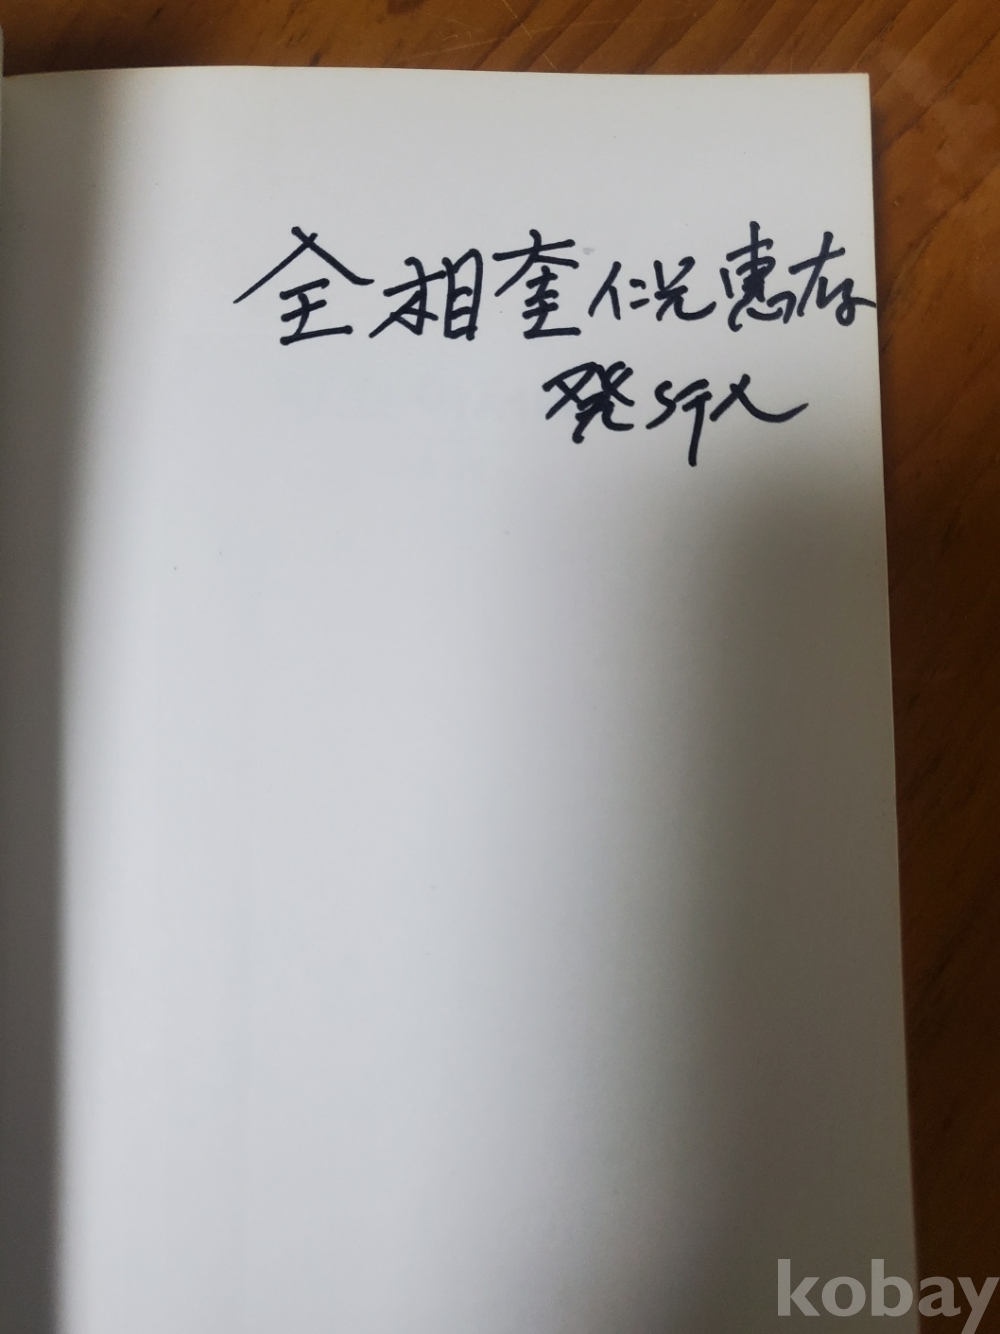 全相奎仁兄惠存
発行人
kobay